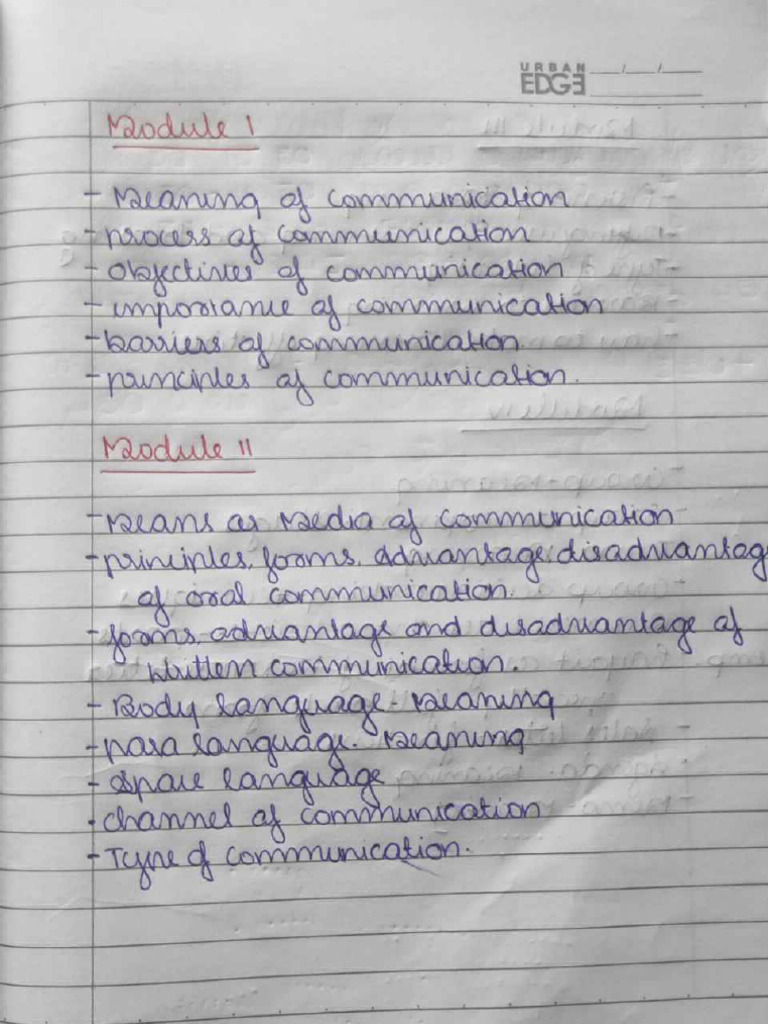 URBAN
EDGE
Module I
- Meaning of communication
- process of communication
- objectives of communication
- importance of communication
- barriers of communication.
- principles of communication.
Module II
- Means or Media of communication
- principles, forms, advantage, disadvantag
of oral communication.
- forms advantage and disadvantage of
written communication.
- Body language - Meaning
- para language. Meaning
- Space language
. channel of communication
- Type of communication.